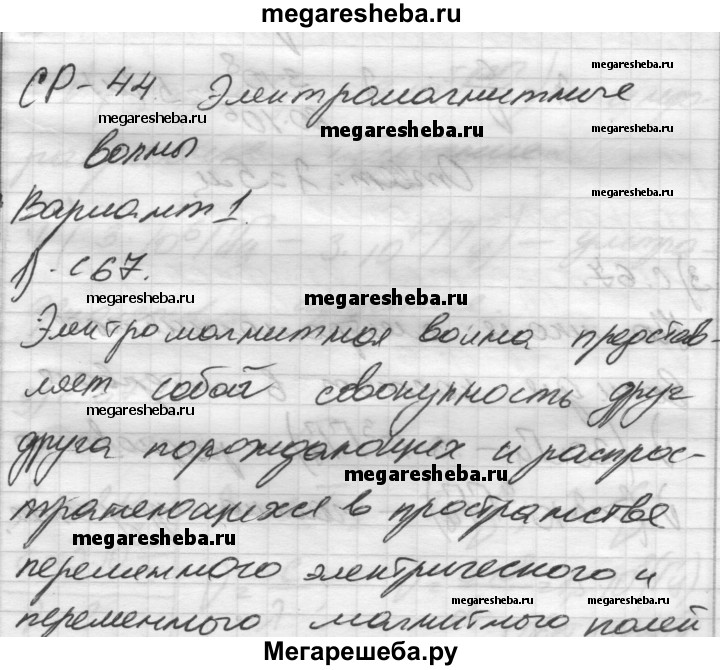 megaresheba.ru
СР-44. Электромагнитные
волны
Вариант 1.
1). с 67.
Электромагнитная волна представ-
ляет собой совокупность друг
друга порождающих и распрос-
траняющихся в пространстве
переменного электрического и
переменного магнитного полей
megaresheba.ru
megaresheba.ru
megaresheba.ru
megaresheba.ru
megaresheba.ru
megaresheba.ru
megaresheba.ru
megaresheba.ru
megaresheba.ru
megaresheba.ru
megaresheba.ru
megaresheba.ru
megaresheba.ru
megaresheba.ru
Мегарешеба.ру